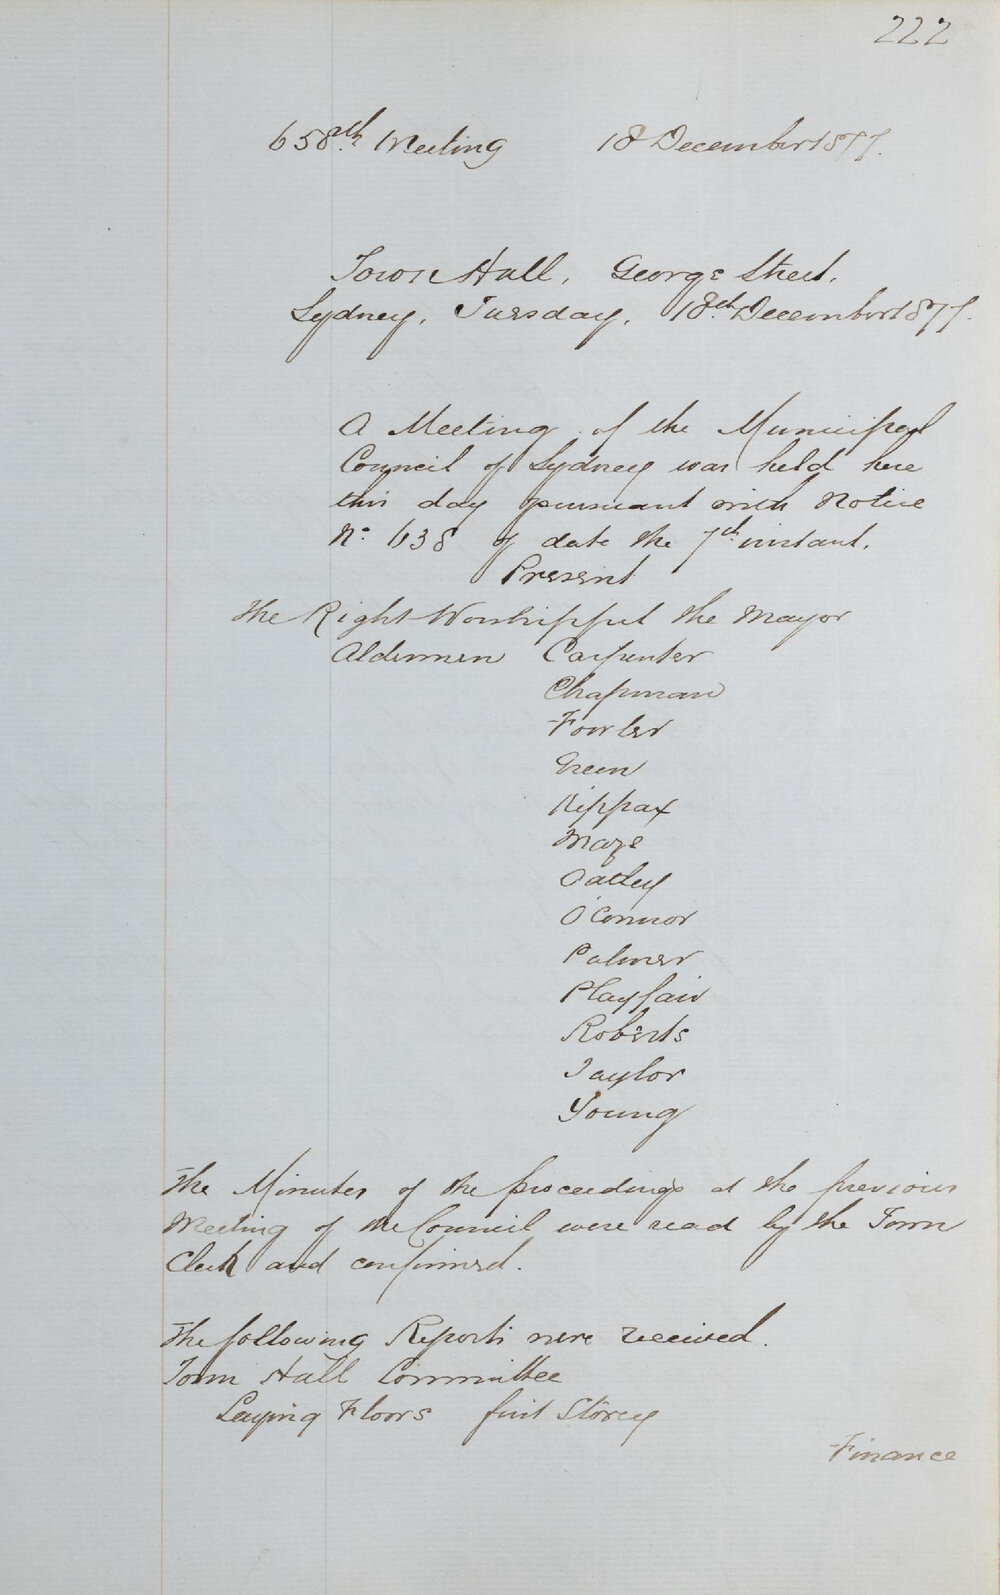 222
658th Meeting 18 December 1877.
Town Hall, George Street,
Sydney, Tuesday, 18th December 1877.
A Meeting of the Municipal
Council of Sydney was held here
this day pursuant with Notice
No. 638 of date the 7th instant.
Present
The Right Worshipful the Mayor
Aldermen Carpenter
Chapman
Fowler
Green
Kippax
Maze
Oatley
O'Connor
Palmer
Playfair
Roberts
Taylor
Young
The Minutes of the proceedings at the previous
Meeting of the Council were read by the Town
Clerk and confirmed.
The following Reports were received.
Town Hall Committee
Laying Floors first Storey
Finance